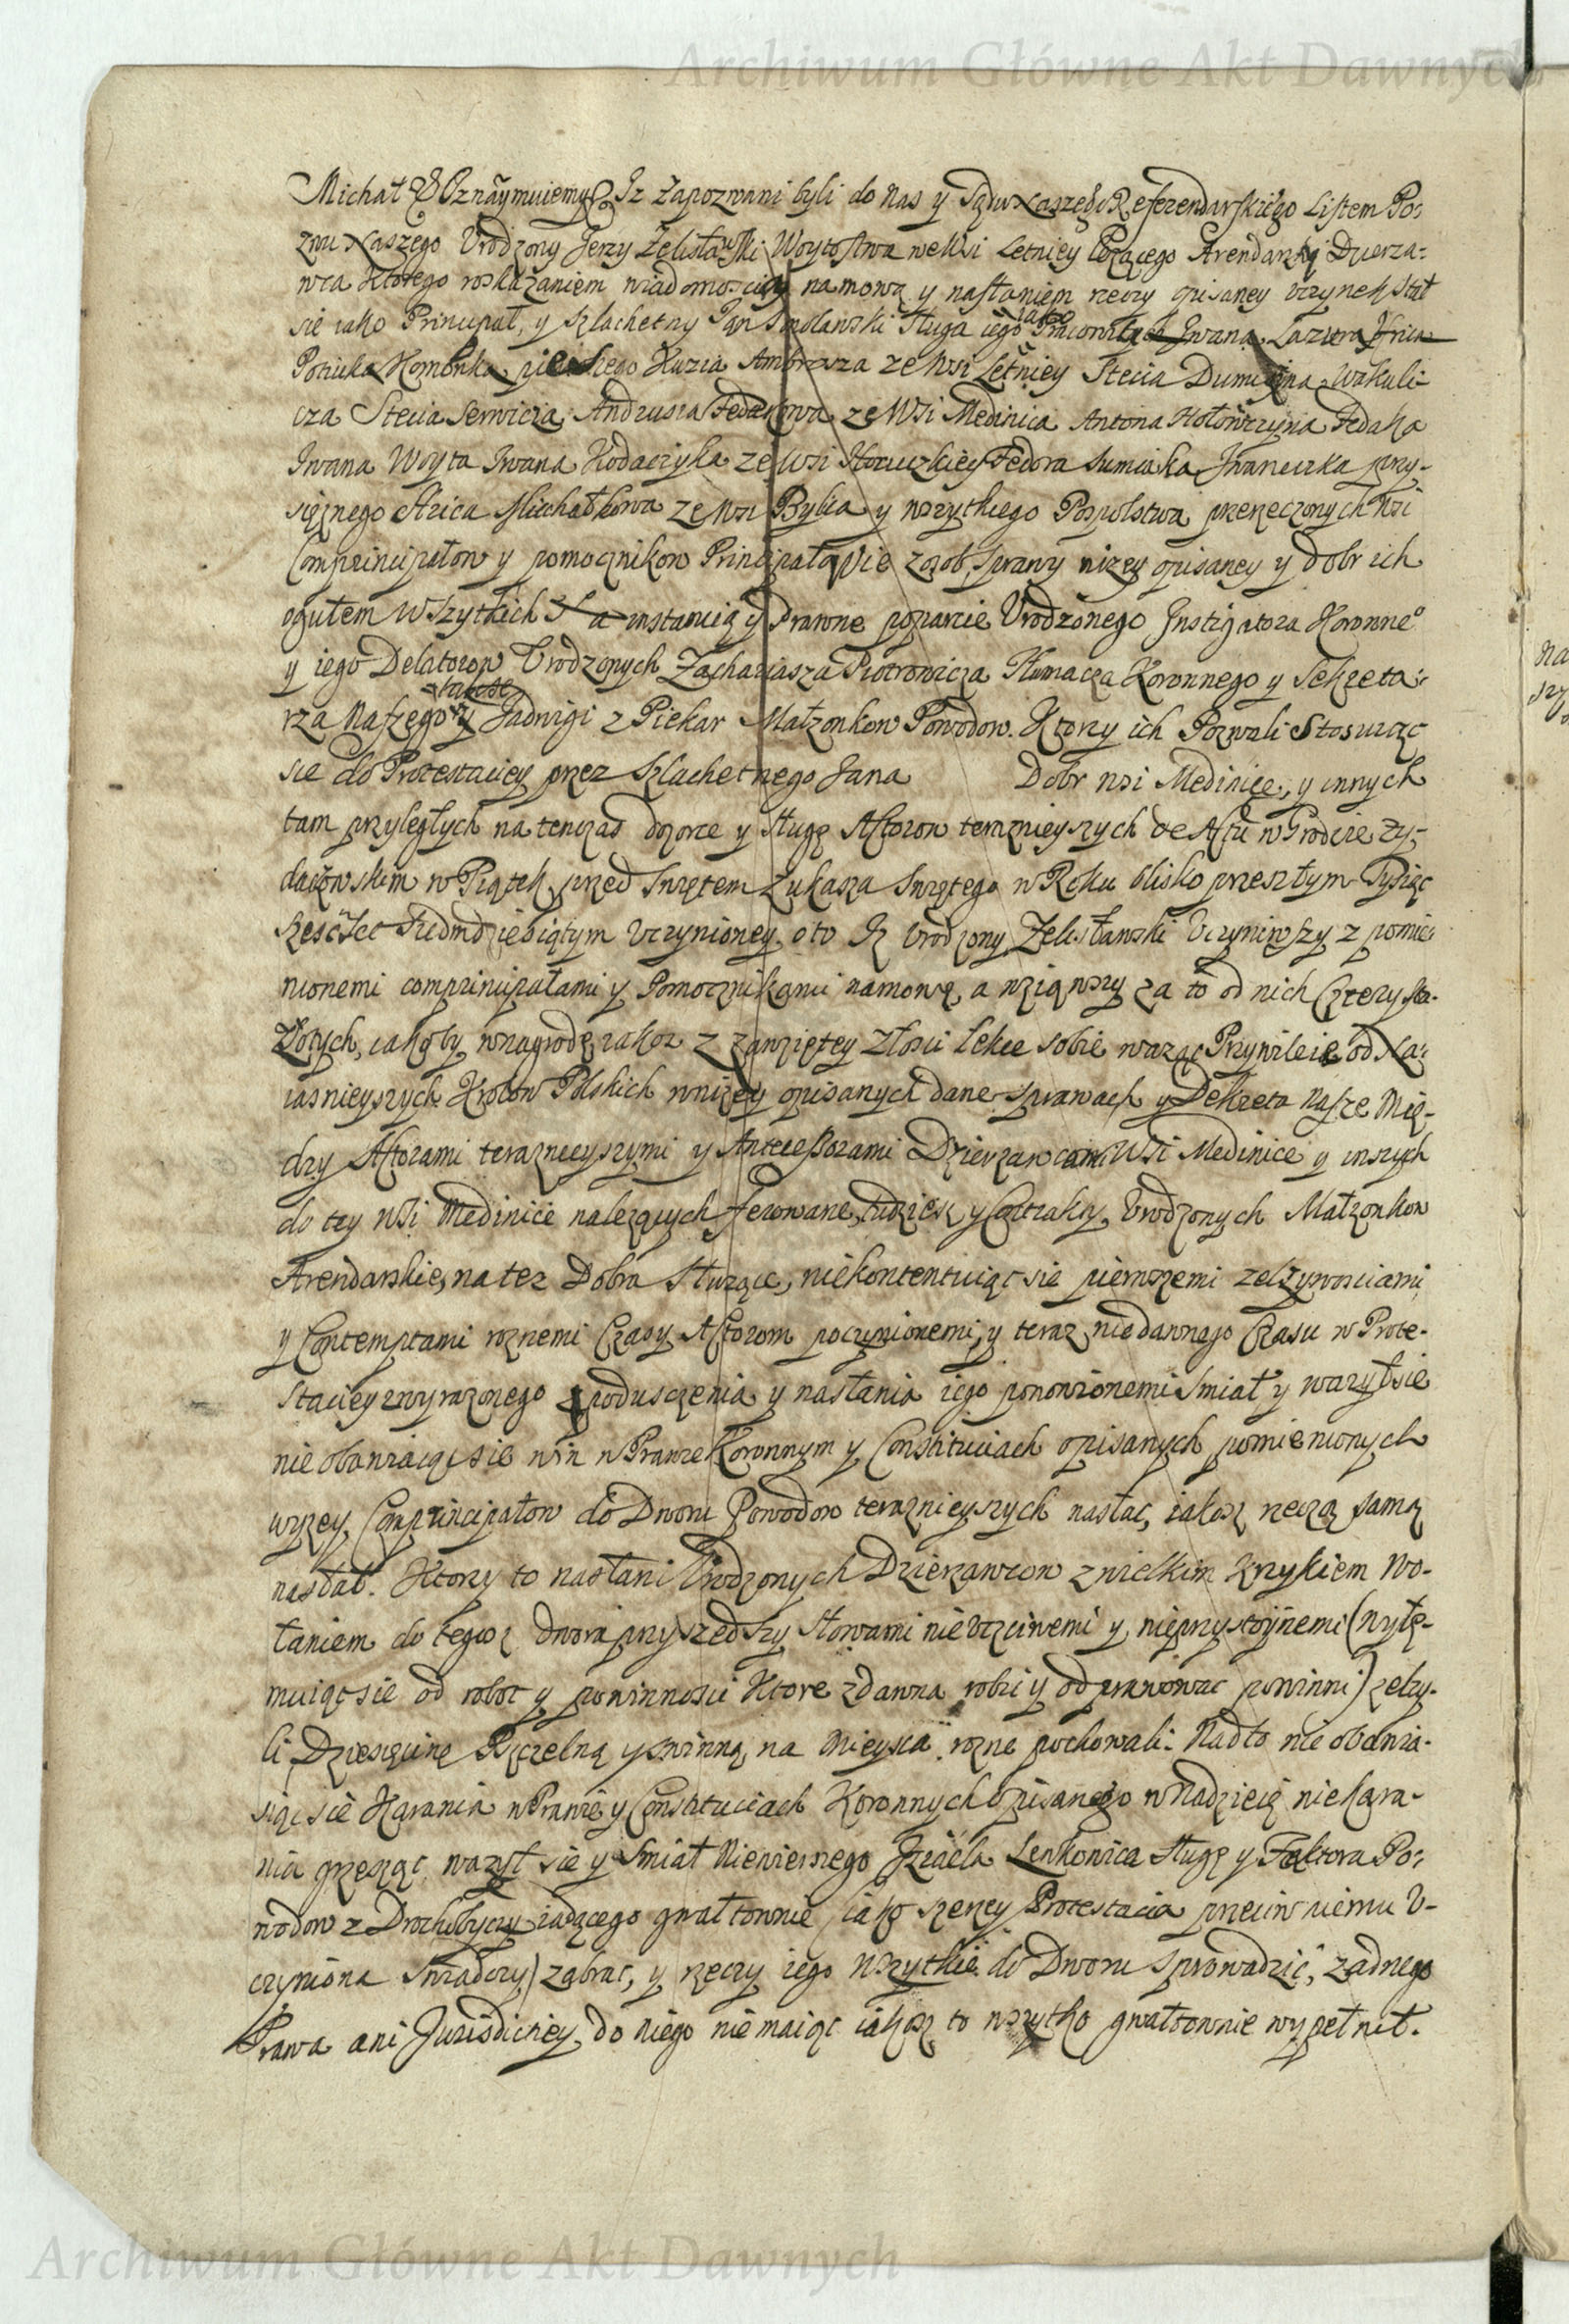 Archiwum Główne Akt Dawnych
Michał & Oznaymuiemy & Iz Zapozwani byli do nas y Sądu naszego Referendarskiego Listem Po-
zwu naszego Urodzony Jerzy Zelisławski Woytostwa we Wsi Letniey leżącego Arendarzky Dzierza-
wca ktorego roskazaniem wiadomoscią namową y nasłaniem rzeczy opisaney uczynek stał
się iako Principał, y Szlachetny Jan Smolanski Sługa iego iako Pracowitych Iwana, Lazura
Potiuka Kuzia Ambrosza ze Wsi Letniey Stecia Wakuli-
cza Stecia Senwicza, Andrusia Fedakowa ze Wsi Medinica Antona Fedaka
Iwana Woyta Iwana Kodaczyka ze Wsi Fedora Sumiaka Iwaneczka przy-
siężnego Michałkowa ze Wsi Bylica y wszytkiego Pospolstwa przerzeczonych Wsi
Comprincipałow y pomocznikow Principała nie z osob, sprawy nizey opisaney y dobr ich
ogułem wszytkich Na instancią y Prawne poparcie Urodzonego Instigatora Koronneo
y iego Delatorow Urodzonych Zachariasza Piotrowicza Tłumacza Koronnego y Sekreta-
rza Naszego y Jadwigi z Piekar Małzonkow Powodow. Ktorzy ich Pozwali Stosuiąc
się do Protestaciey przez Szlachetnego Jana Dobr wsi Medinice, y innych
tam przyległych na tenczas dozorce y sługę Actorow teraznieyszych de Actu w Grodzie Zy-
daczowskim w Piątek przed Swiętem Łukasza Swiętego w Roku blisko przeszłym Tysiąc
szescset siedmdziesiątym uczynioney. o to Iz Urodzony Zelisławski Uczyniwszy z pomie-
nionemi comprincipałami y Pomocznikami namowę, a wziąwszy za to od nich Cztery sta
Złotych, iakoby w nagrodę iakoz z zawziętey złosci lekce sobie waząc Przywileie od Na-
iasnieyszych Krolow Polskich w nizey opisanych dane sprawach y Dekreta Nasze Mię-
dzy Actorami teraznieyszymi y Antecessorami Dzierzawcami Wsi Medinice y inszych
do tey Wsi Medinice nalezących ferowane, tudziesz y Contrakty Urodzonych Małzonkow
Arendarskie, na tez Dobra słuzące, niekontentuiąc się pierwszemi zelzywosciami
y Contemptami roznemi Czasy Actorom poczynionemi, y teraz niedawnego Czasu w Prote-
staciey zwyrazonego z poduszczenia y nasłania iego ponowionemi smiał y wazył się
nie obawiaiąc się win w Prawie Koronnym y Constituciach opisanych pomienionych
wyzey, Comprincipałow do Dworu Powodow teraznieyszych nasłac, iakosz rzeczą samą
nasłał. Ktorzy to nasłani Urodzonych Dzierzawcow z wielkim krzykiem wo-
łaniem do tegoz dwora przyszedszy słowami nieuczciwemi y nieprzystoynemi (wyłę-
muiąc się od robot y powinnosci ktore zdawna robic y odprawowac powinni) zelzy-
li Dziesięcinę Pszczelną y swinną, na mieysca rozne pochowali. Nadto nie obawia-
iąc się Karania w Prawie y Constituciach Koronnych opisanego w nadzieię niekara-
nia grzesząc wazył się y smiał Niewiernego Izraela Lenkowica sługę y Faktora Po-
wodow z Drochobyczy iadącego gwałtownie (iako szerzey Protestacia przeciw niemu U-
czyniona swiadczy) zabrac, y rzeczy iego wszytkie do Dworu sprowadzic, zadnego
Prawa ani Jurisdictiey do niego nie maiąc iakosz to wszytko gwałtownie wypełnił.
Archiwum Główne Akt Dawnych